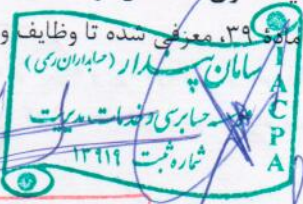 ماده ۳۹، معرفی شده تا وظایف و
سامان پندار (حسابداران رسمی)
موسسه حسابرسی و خدمات مدیریت
شماره ثبت ۱۳۹۱۹
IACPA